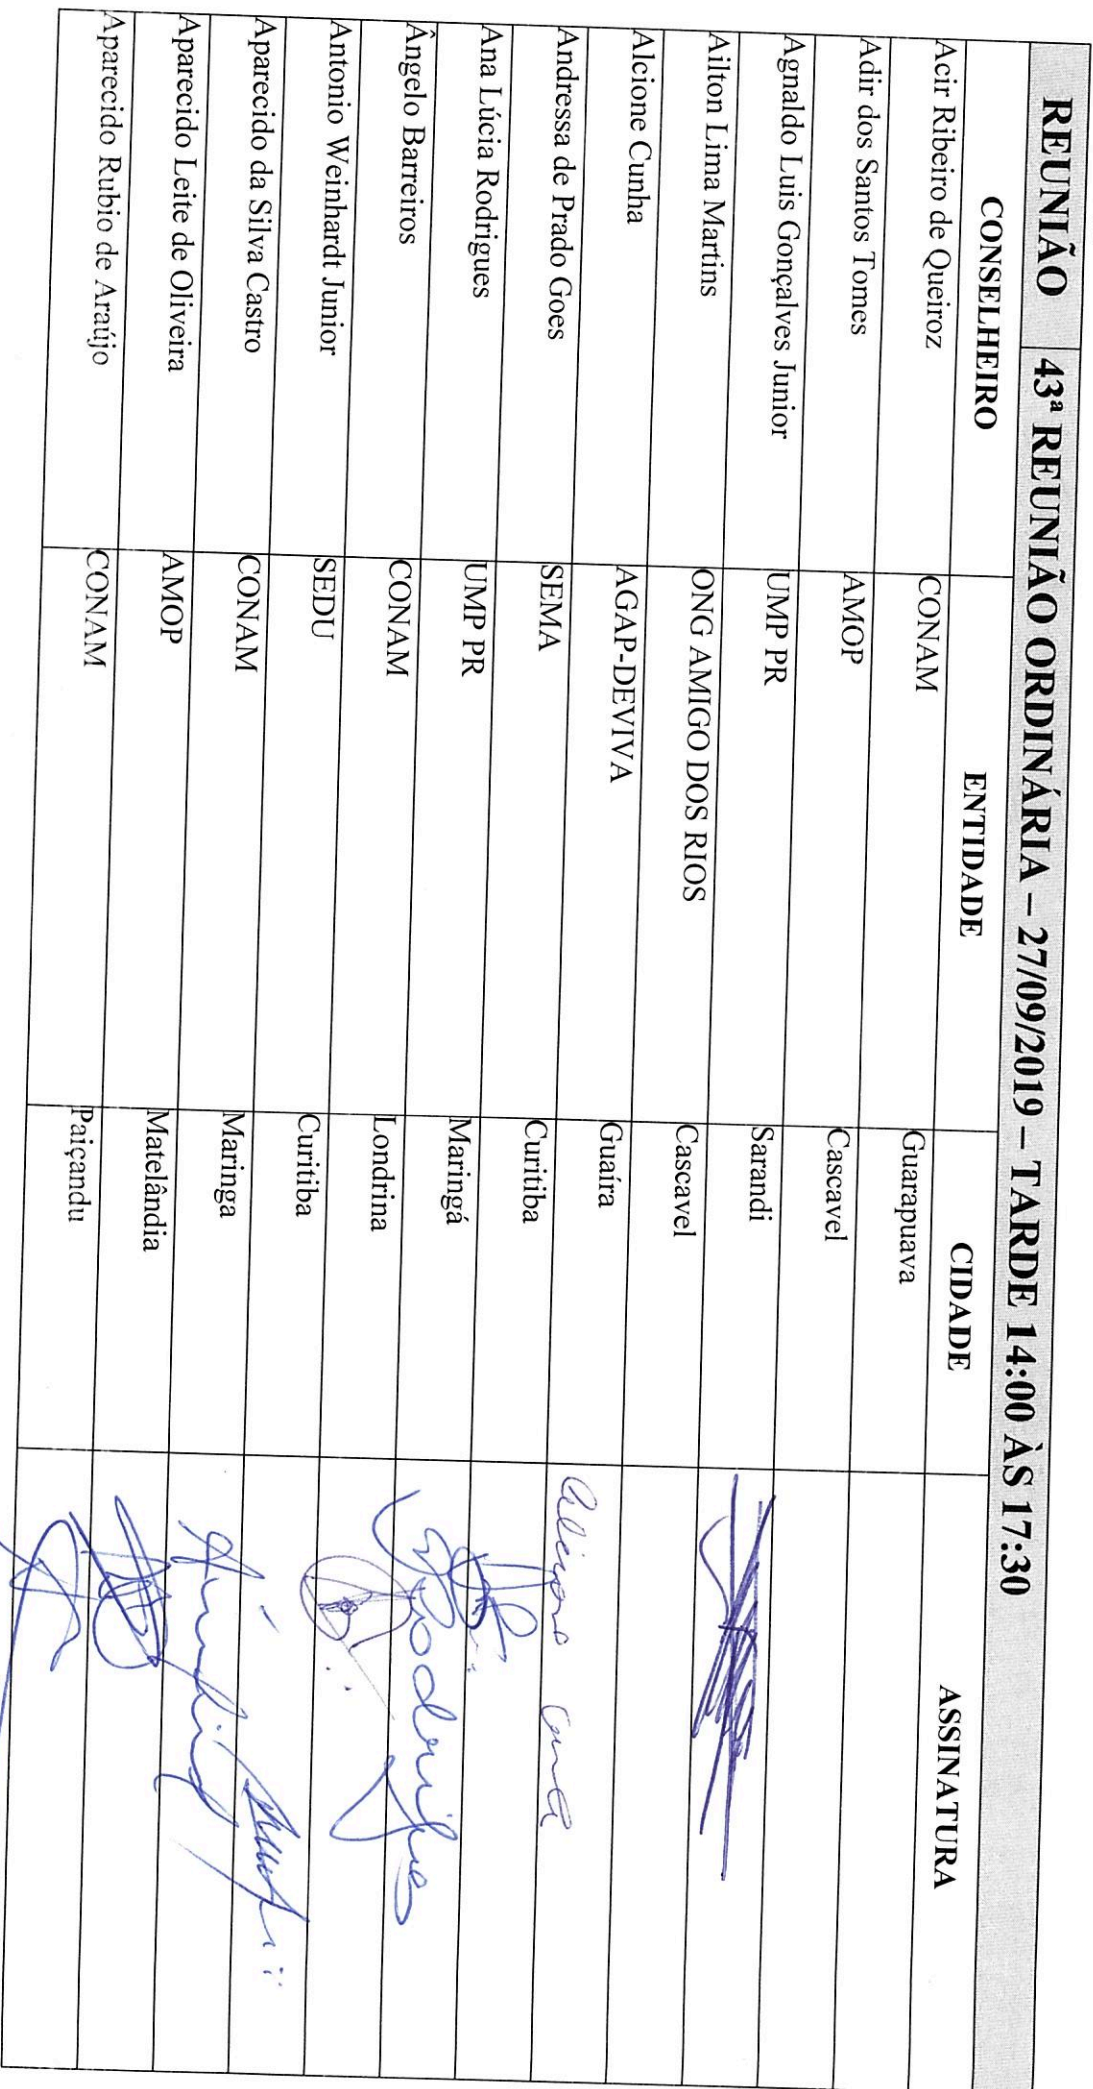 REUNIÃO 43ª REUNIÃO ORDINÁRIA – 27/09/2019 – TARDE 14:00 ÀS 17:30
CONSELHEIRO ENTIDADE CIDADE ASSINATURA
Acir Ribeiro de Queiroz CONAM Guarapuava
Adir dos Santos Tomes AMOP Cascavel
Agnaldo Luis Gonçalves Junior UMP PR Sarandi
Ailton Lima Martins ONG AMIGO DOS RIOS Cascavel
Alcione Cunha AGAP-DEVIVA Guaíra
Andressa de Prado Goes SEMA Curitiba
Ana Lúcia Rodrigues UMP PR Maringá Rodrigues
Ângelo Barreiros CONAM Londrina
Antonio Weinhardt Junior SEDU Curitiba
Aparecido da Silva Castro CONAM Maringa
Aparecido Leite de Oliveira AMOP Matelândia
Aparecido Rubio de Araújo CONAM Paiçandu